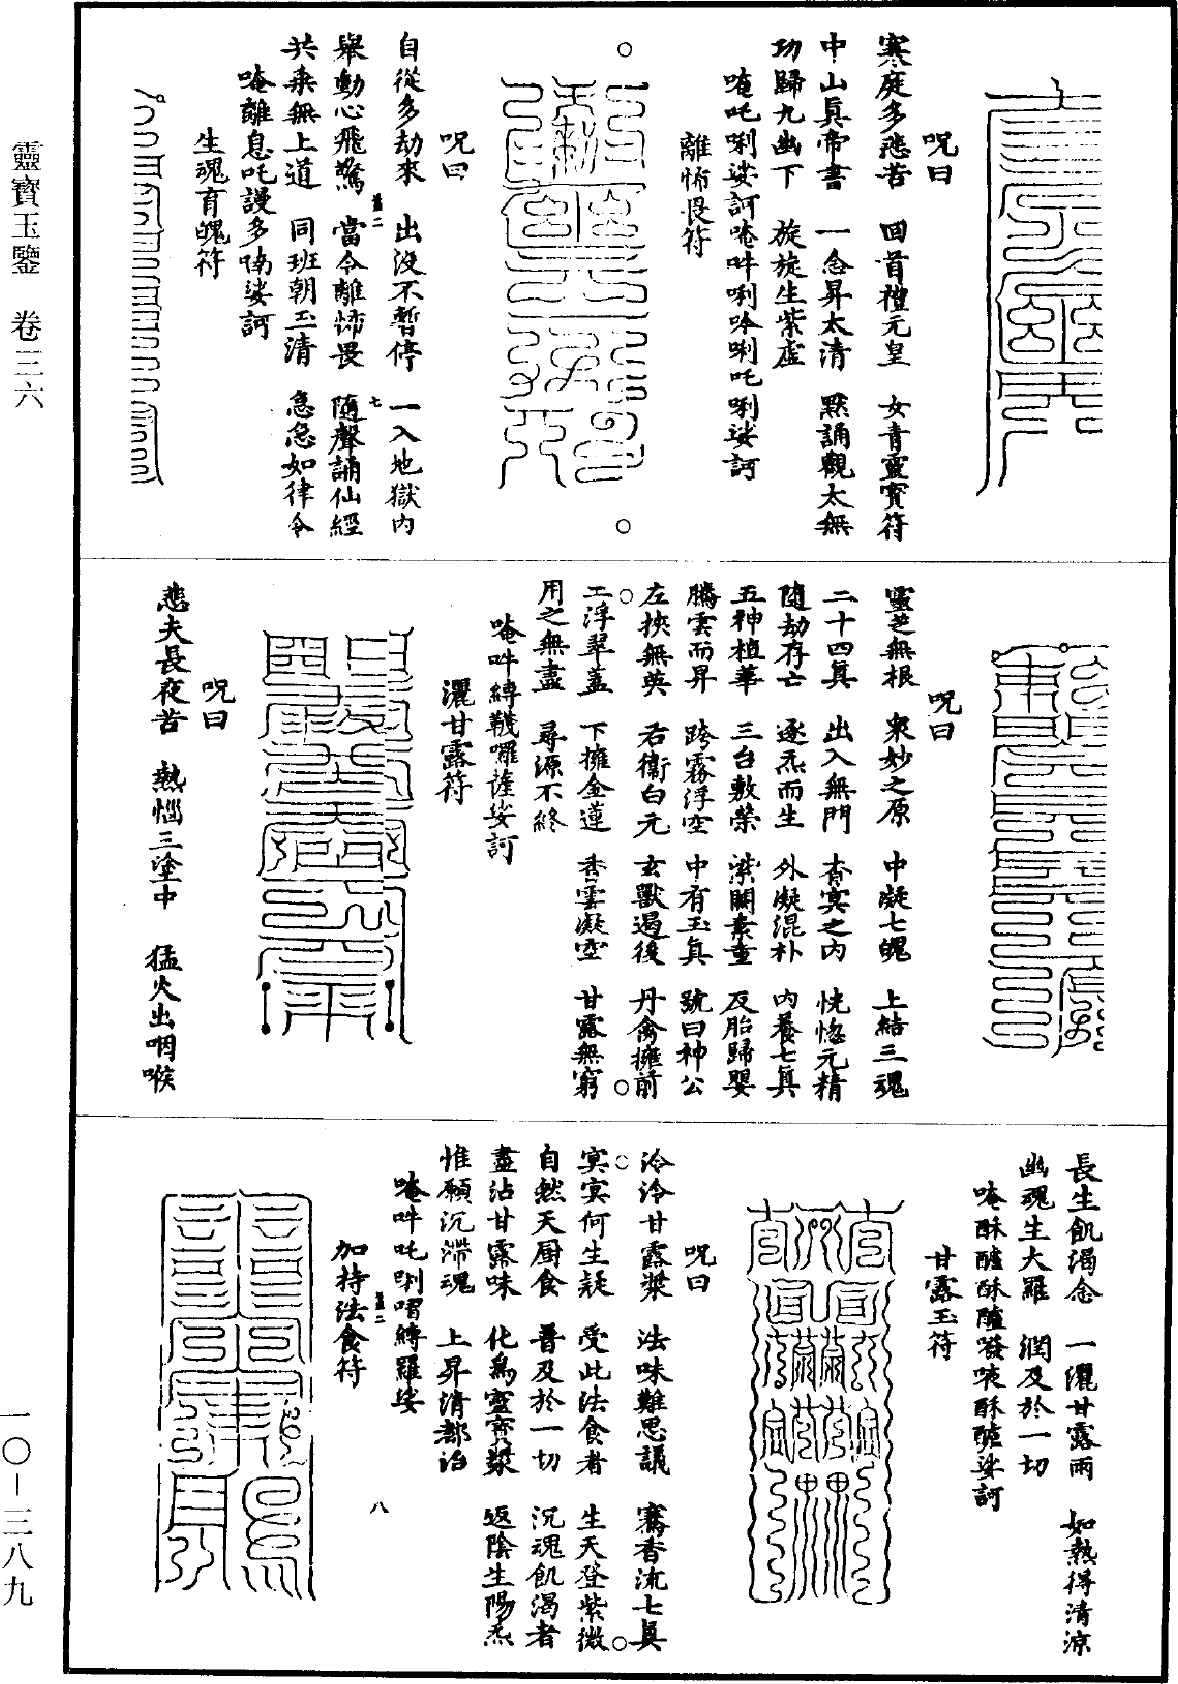 靈寶玉鑒　卷三六
一〇－三八九
呪曰
寒庭多悲苦　回首禮元皇　女青靈寶符
中山真帝書　一念昇太清　默誦觀太無
功歸九幽下　旋旋生紫虛
唵吒唎娑訶唵吽唎吟唎吒唎娑訶
離怖畏符
呪曰
自從多劫來　出沒不暫停　一入地獄內
舉動心飛驚　當令離怖畏　隨聲誦仙經
共乘無上道　同班朝玉清　急急如律令
唵離息吒謾多喃娑訶
生魂育魄符
呪曰
靈芝無根　衆妙之原　中凝七魄　上結三魂
二十四真　出入無門　杳冥之內　恍惚元精
隨劫存亡　逐炁而生　外凝混朴　內養七真
五神植華　三台敷榮　滎關素童　反胎歸嬰
騰雲而昇　跨霧浮空　中有玉真　號曰神公
左挾無英　右衛白元　玄獸遏後　丹禽擁前
二浮翠蓋　下擁金蓮　香雲凝空　甘露無窮
用之無盡　尋源不終
唵吽縛韈囉薩娑訶
灑甘露符
呪曰
悲夫長夜苦　熱惱三塗中　猛火出咽喉
長生飢渴念　一灑甘露雨　如熱得清涼
幽魂生大羅　潤及於一切
唵酥醯酥醯癹唊酥醯娑訶
甘露玉符
呪曰
泠泠甘露漿　法味難思議　騫香流七真
冥冥何生疑　受此法食者　生天登紫微
自然天厨食　普及於一切　沉魂飢渴者
盡沾甘露味　化為靈寶漿　返陰生陽炁
惟願沉滯魂　上昇清都詒
唵吽吒唎嚪縛羅娑
加持法食符
七
八